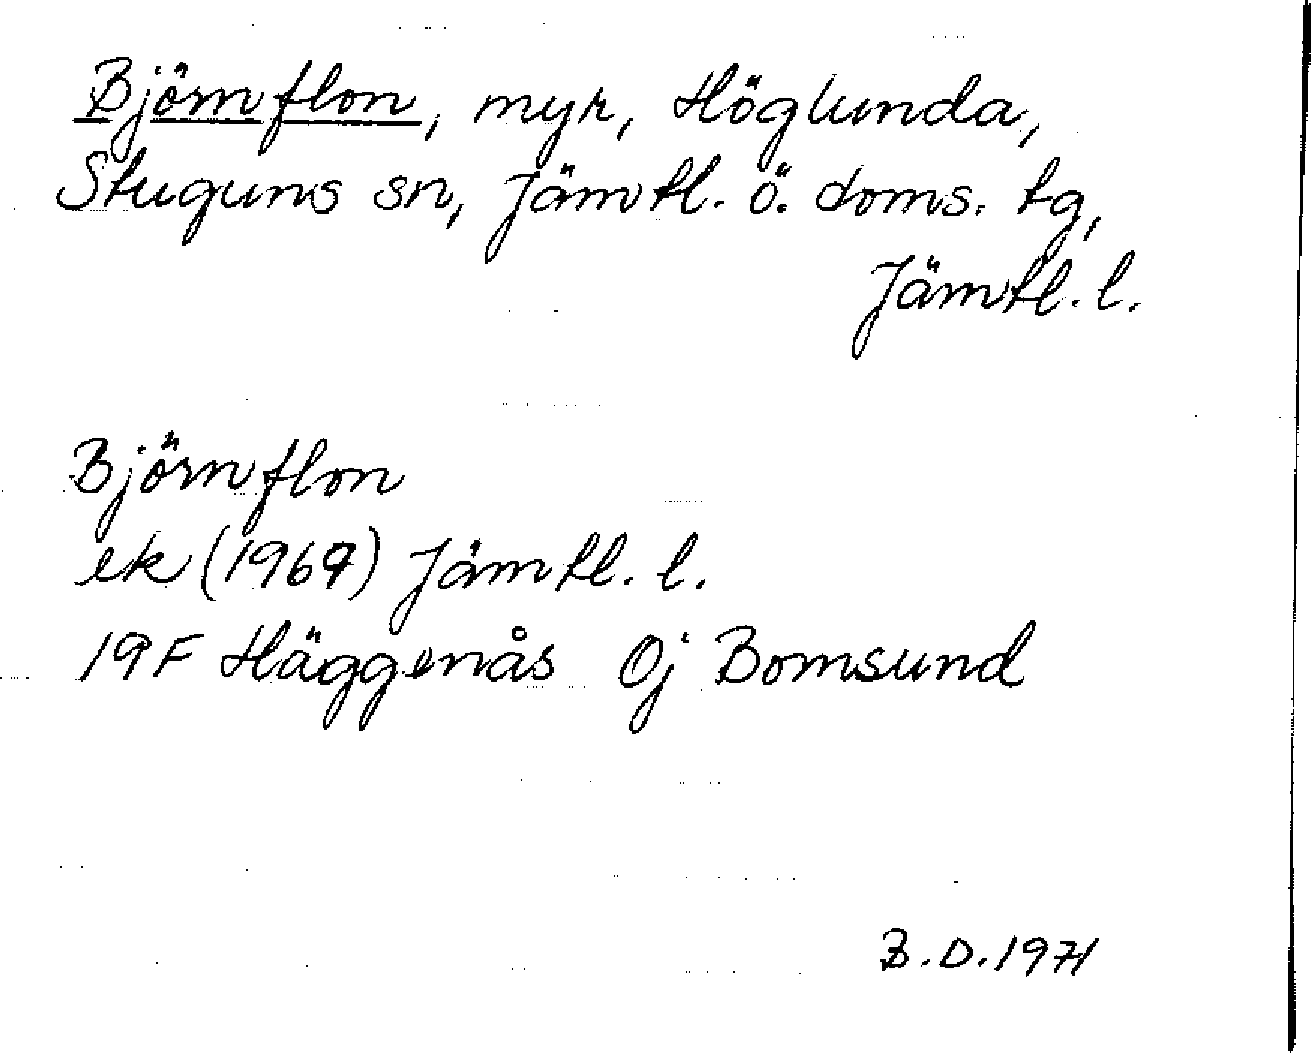 Björnflon, myr, Höglunda,
Stuguns sn, Jämtl. ö. doms. tg,
Jämtl. l.
Björnflon
ek (1969) Jämtl. l.
19F Häggenås Oj Bomsund
B.D. 1971